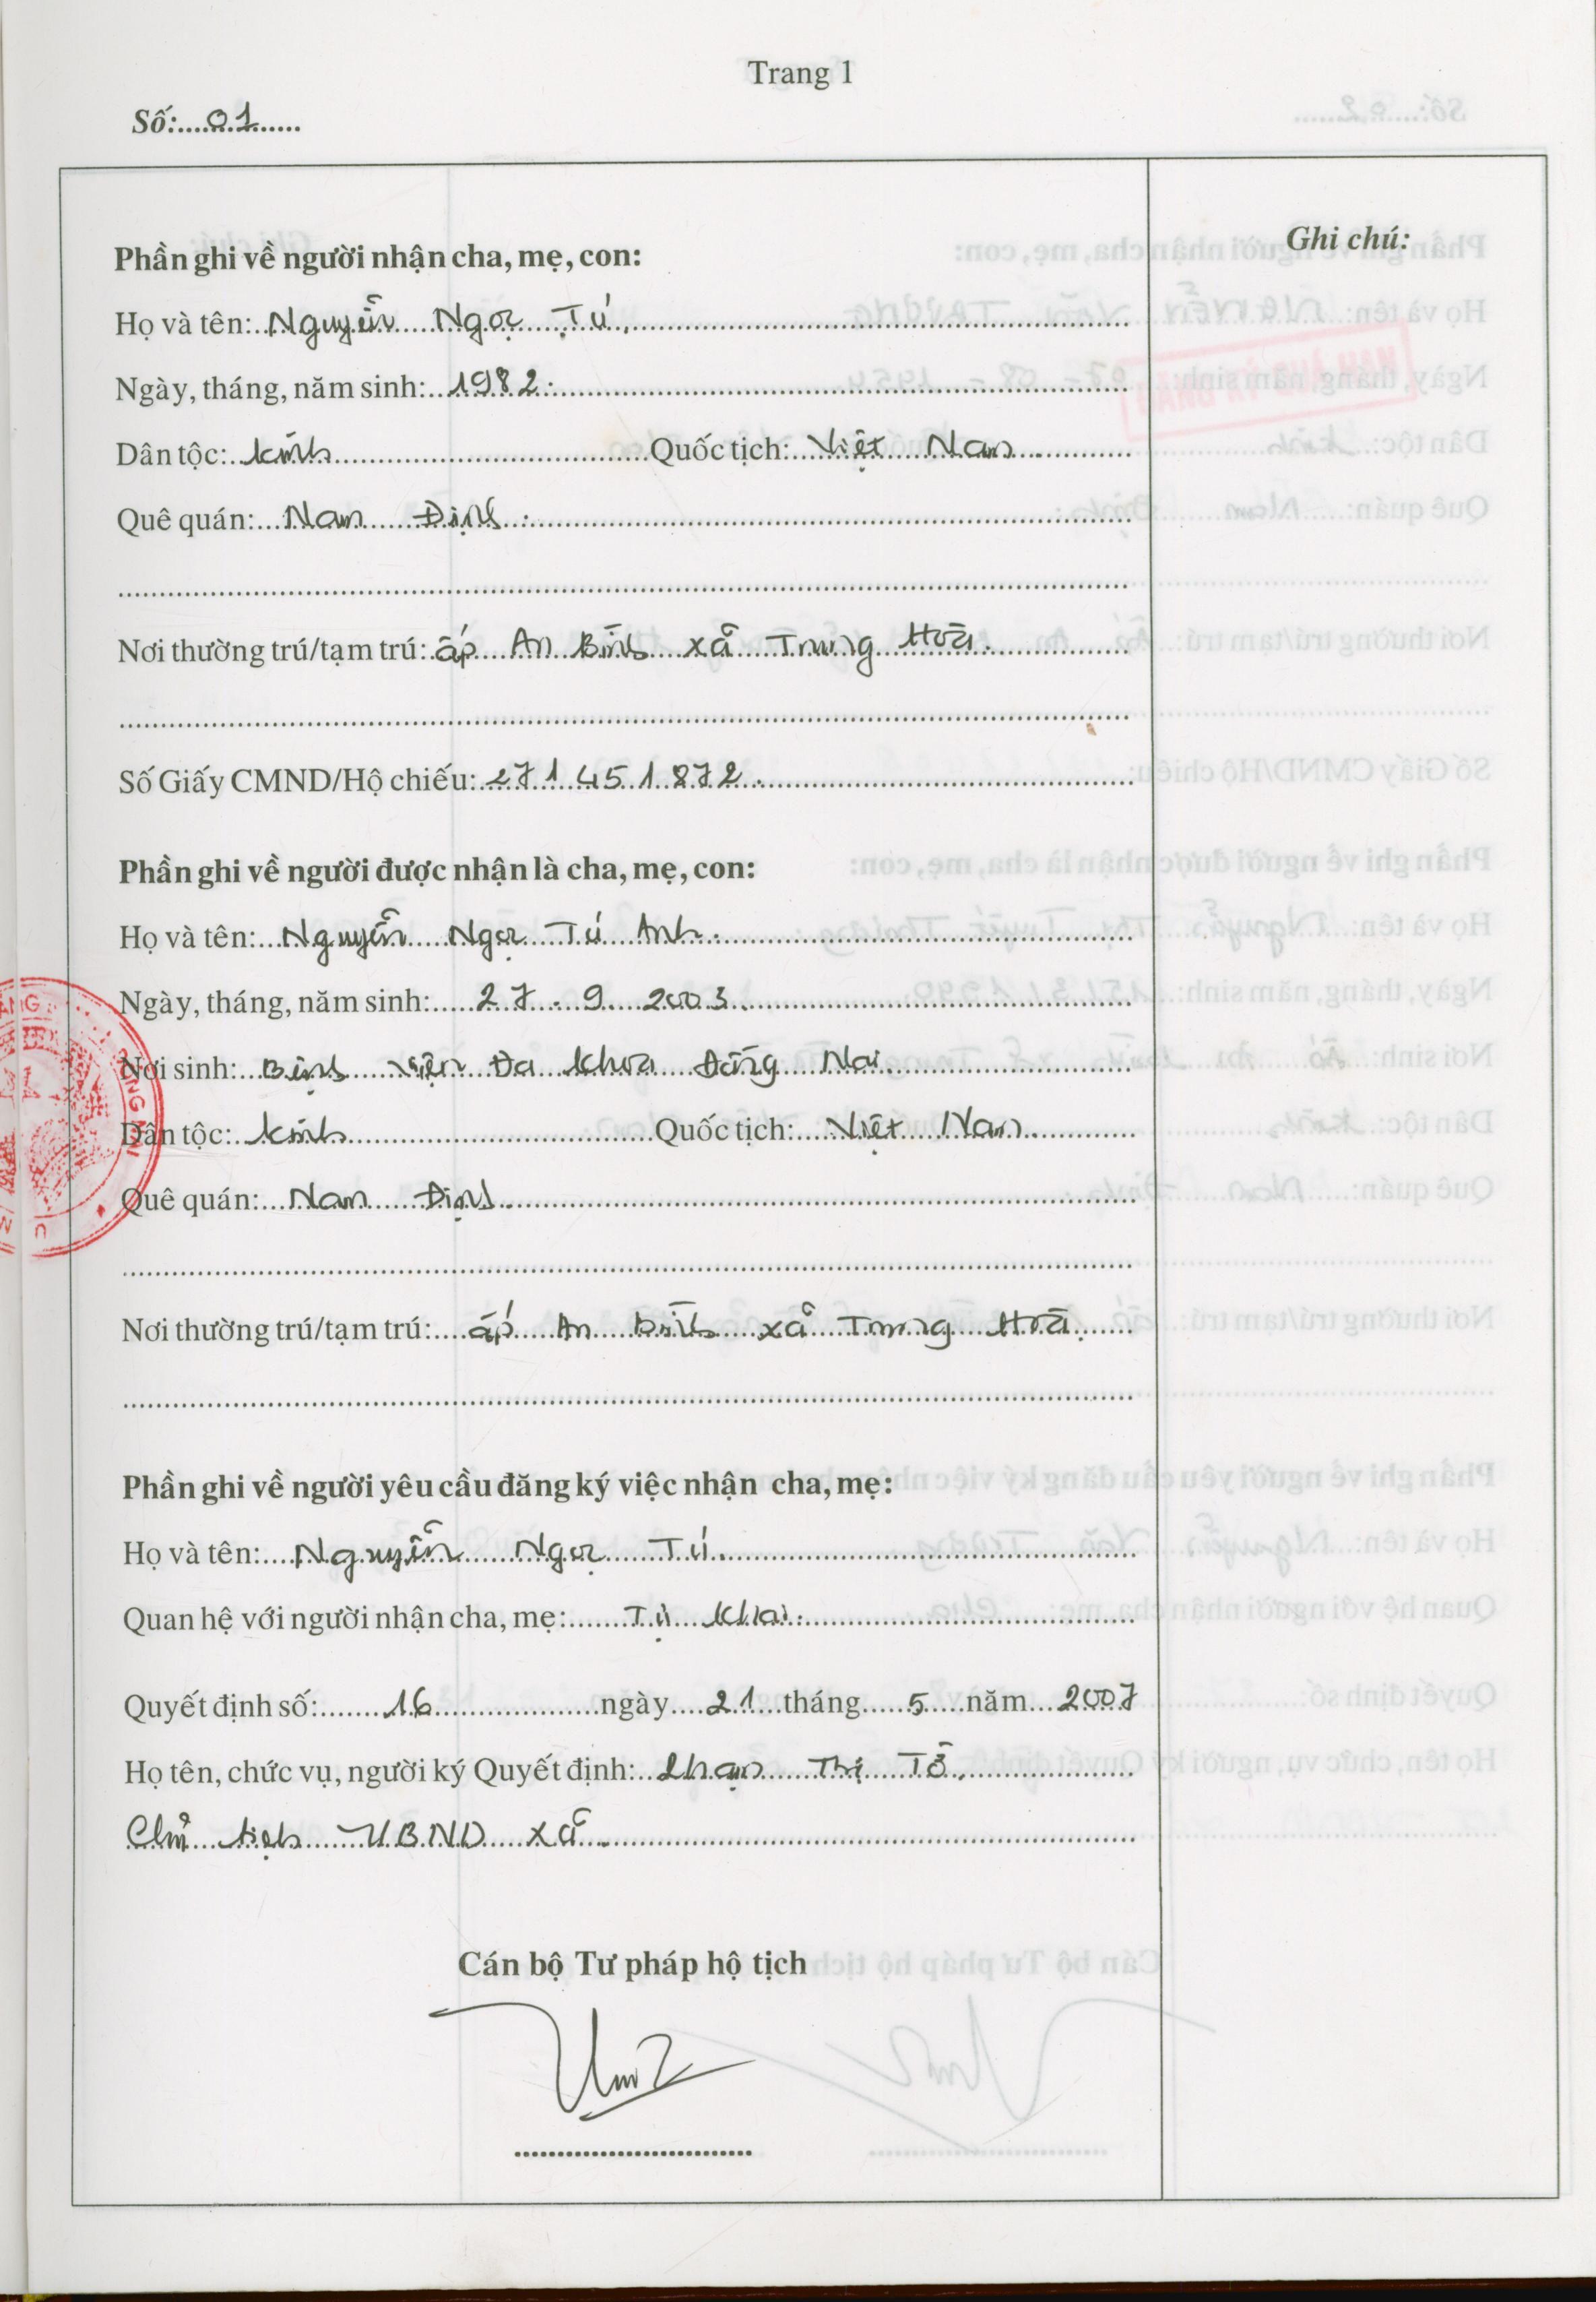 Trang 1
Số: 01
Ghi chú:
Phần ghi về người nhận cha, mẹ, con:
Họ và tên: Nguyễn Ngọc Tú.
Ngày, tháng, năm sinh: 1982.
Dân tộc: kinh Quốc tịch: Việt Nam.
Quê quán: Nam Định.
Nơi thường trú/tạm trú: ấp An Bình xã Trung Hòa.
Số Giấy CMND/Hộ chiếu: 271451872.
Phần ghi về người được nhận là cha, mẹ, con:
Họ và tên: Nguyễn Ngọc Tú Anh.
Ngày, tháng, năm sinh: 27.9.2003
Nơi sinh: Bệnh viện Đa khoa Đồng Nai
Dân tộc: kinh Quốc tịch: Việt Nam
Quê quán: Nam Định.
Nơi thường trú/tạm trú: ấp An Bình xã Trung Hòa.
Phần ghi về người yêu cầu đăng ký việc nhận cha, mẹ:
Họ và tên: Nguyễn Ngọc Tú.
Quan hệ với người nhận cha, mẹ: Tự khai.
Quyết định số: 16 ngày 21 tháng 5 năm 2007
Họ tên, chức vụ, người ký Quyết định: Phạm Thị Tô.
Chủ tịch UBND xã.
Cán bộ Tư pháp hộ tịch